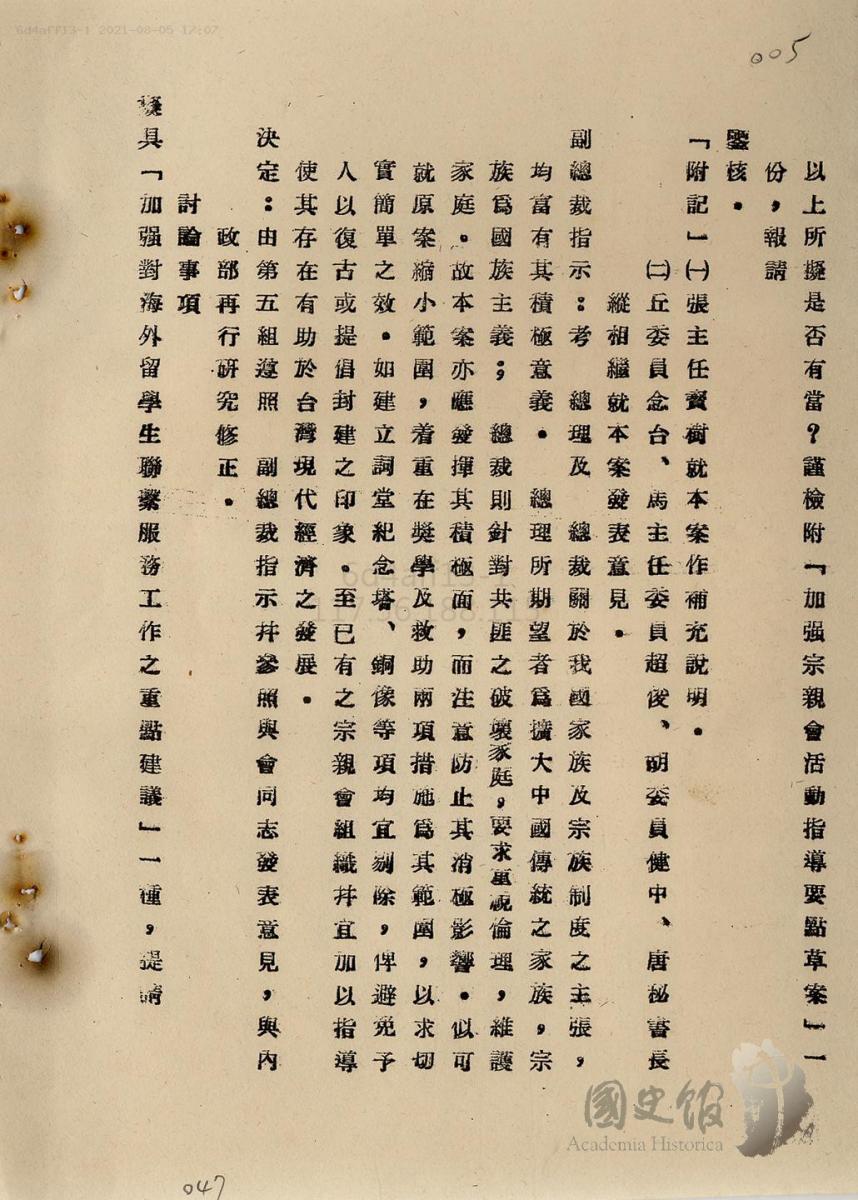 6d4aff13-1 2021-08-05 17:07
005
以上所擬是否有當?謹檢附「加强宗親會活動指導要點草案」一
份,報請
鑒核。
「附記」㈠張主任寶樹就本案作補充說明。
㈡丘委員念台、馬主任委員超俊、胡委員健中、唐秘書長
縱相繼就本案發表意見。
副總裁指示:考 總理及 總裁關於我國家族及宗族制度之主張,
均富有其積極意義。 總理所期望者爲擴大中國傳統之家族,宗
族爲國族主義; 總裁則針對共匪之破壞家庭,要求重視倫理,維護
家庭。故本案亦應發揮其積極面,而注意防止其消極影響。似可
就原案縮小範圍,着重在奬學及救助兩項措施爲其範圍,以求切
實簡單之效。如建立詞堂紀念塔、銅像等項均宜剔除,俾避免予
人以復古或提倡封建之印象。至已有之宗親會組織幷宜加以指導
使其存在有助於台灣現代經濟之發展。
決定:由第五組遵照 副總裁指示幷參照與會同志發表意見,與內
政部再行研究修正。
討論事項
擬具「加强對海外留學生聯繫服務工作之重點建議」一種,提請
國史館
Academia Historica
047